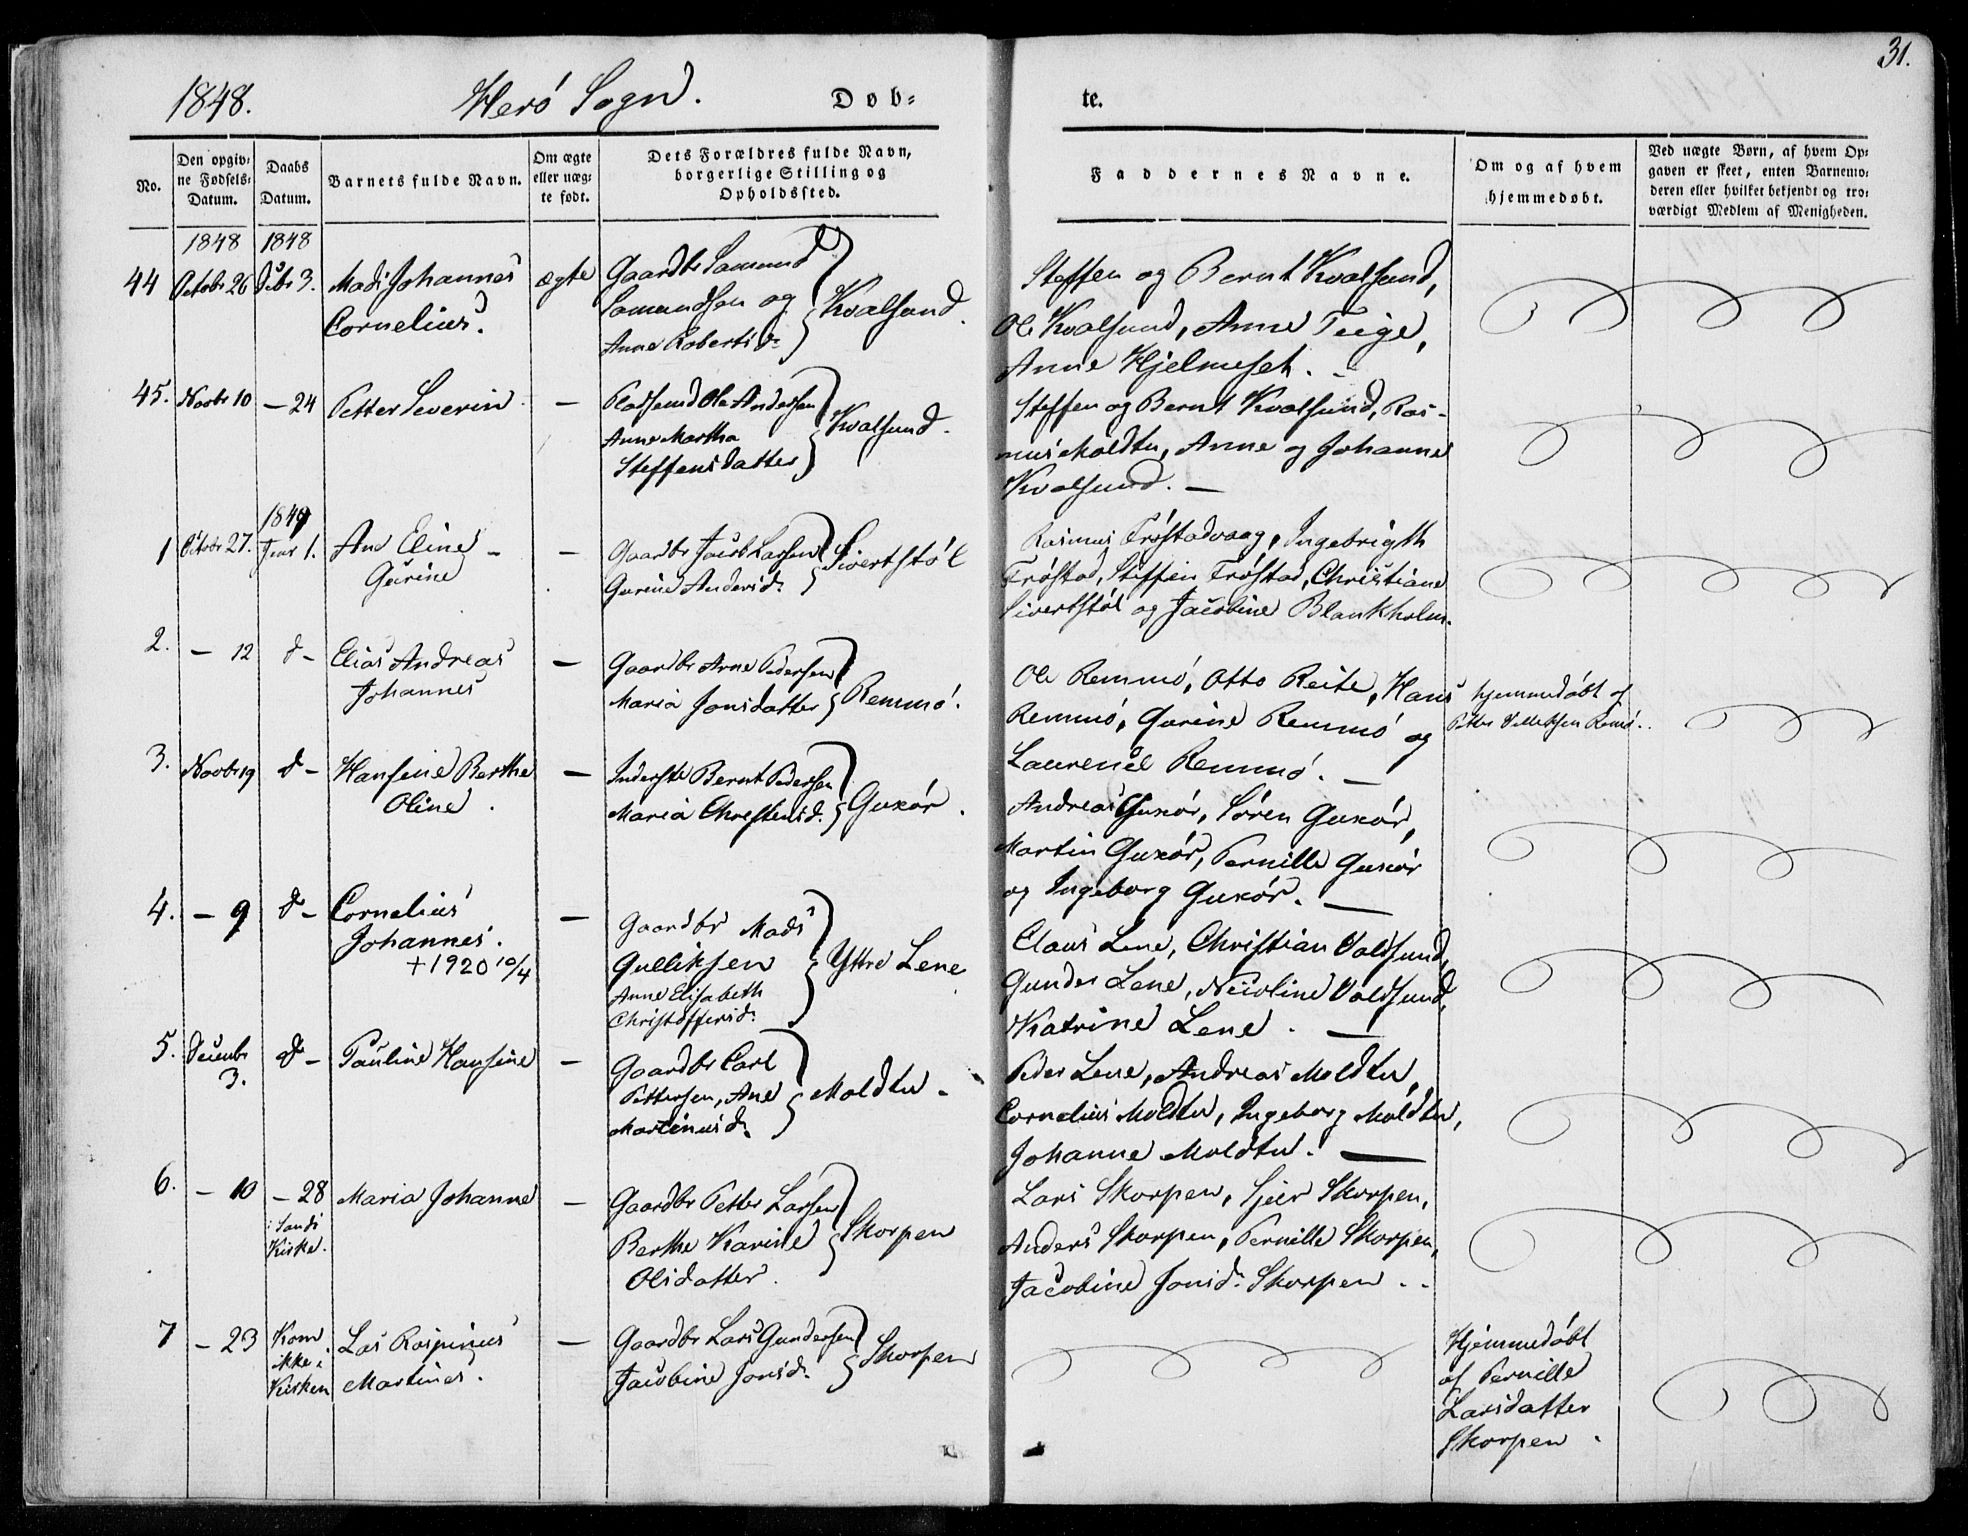 31.
1848. Herö Sogn. Døb=
te.
No.
Den opgiv=
ne Fødsels=
Datum.
Daabs
Datum.
Barnets fulde Navn.
Om ægte
eller uæg=
te født.
Dets Forældres fulde Navn,
borgerlige Stilling og
Opholdssted.
Faddernes Navne.
Om og af hvem
hjemmedøbt.
Ved uægte Børn, af hvem Op=
gaven er skeet, enten Barnemo=
deren eller hvilket bekjendt og tro=
værdigt Medlem af Menigheden.
1848 1848
44 Octobr 26 Dcbr 3. Mads Johannes
Cornelius.
ægte
Gaardbr Samund
Samundsen og
Anne Robertsd.
Kvalsund.
Steffen og Bernt Kvalsund,
Ole Kvalsund, Anne Teige,
Anne Hjelmeset. –
45. Novbr 10 – 24 Petter Severin –
Pladsmd Ole Andersen
Anne Martha
Steffensdatter
Kvalsund.
Steffen og Bernt Kvalsund, Ras-
mus Moldtu, Anne og Johanne
Kvalsund. –
1849
1 Octobr 27. Jenr 1. Ane Eline –
Gurine
–
Gaardbr Jacob Larsen
Gurine Andersd.
Sivertstøl
Rasmus Frøstadvaag, Ingebrigth
Frøstad, Steffen Frøstad, Christiane
Sivertstøl og Jacobine Blankholm.
2. – 12 d – Elias Andreas
Johannes
–
Gaardbr Arne Pedersen
Maria Jonsdatter
Remmö.
Ole Remmö, Otto Reite, Hans
Remmö, Gurine Remmö og
Laurense Remmö. –
hjemmedøbt af
Petter
3. Novbr 19 d – Hansine Berthe
Oline.
–
Inderste Bernt Pedersen
Maria Christensd.
Guxör.
Andreas Guxör, Sören Guxör,
Martin Guxör, Pernille Guxör
og Ingeborg Guxör. –
4. – 9 d – Cornelius
Johannes.
+ 1920 10/4
–
Gaardbr Mads
Gulliksen
Anne Elisabeth
Christoffersd.
Yttre Lene
Claus Lene, Christian Voldsund,
Gunder Lene, Nicoline Voldsund,
Katrine Lene. –
5. Decembr
3.
d – Pauline Hansine –
Gaardbr Carl
Pettersen, Ane
Martinusd.
Moldtu.
Peder Lene, Andreas Moldtu,
Cornelius Moldtu, Ingeborg Moldtu,
Johanne Moldtu. –
6. – 10 – 28
i Sands
Kirke.
Maria Johanne –
Gaardbr Petter Larsen
Berthe Karine
Olsdatter.
Skorpen
Lars Skorpen, Sjur Skorpen,
Anders Skorpen, Pernille Skorpen,
Jacobine Jonsd. Skorpen.
7 – 23 Kom
ikke i
Kirken
Las Rasmus
Martines.
–
Gaardbr Lars Gundersen
Jacobine Jonsd.
Skorpen
Hjemmedøbt
af Pernille
Larsdatter
Skorpen.